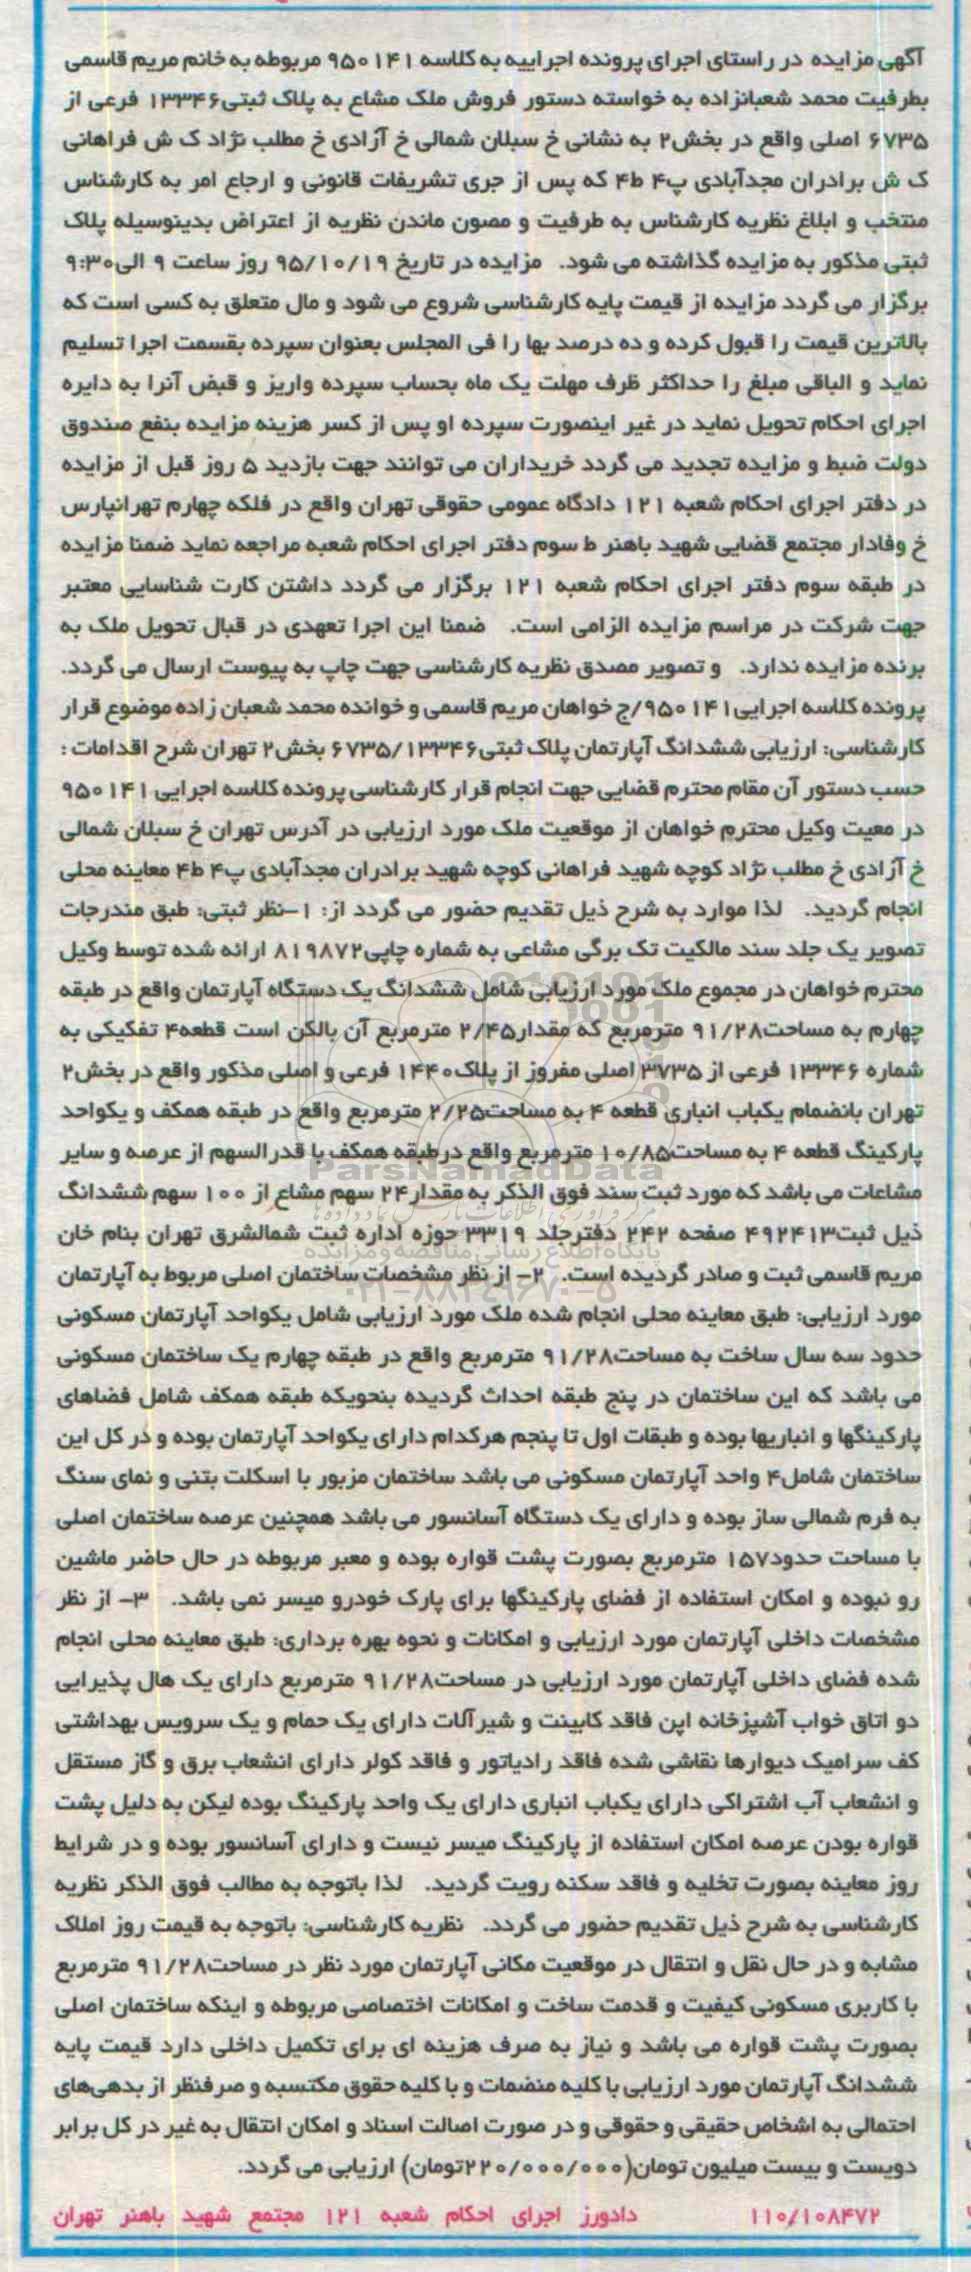 آگهی مزایده در راستای اجرای پرونده اجراییه به کلاسه ۹۵۰۱۴۱ مربوطه به خانم مریم قاسمی
بطرفیت محمد شعبانزاده به خواسته دستور فروش ملک مشاع به پلاک ثبتی۱۳۳۴۶ فرعی از
۶۷۳۵ اصلی واقع در بخش۲ به نشانی خ سبلان شمالی خ آزادی خ مطلب نژاد ک ش فراهانی
ک ش برادران مجدآبادی پ۴ ط۴ که پس از جری تشریفات قانونی و ارجاع امر به کارشناس
منتخب و ابلاغ نظریه کارشناس به طرفیت و مصون ماندن نظریه از اعتراض بدینوسیله پلاک
ثبتی مذکور به مزایده گذاشته می شود. مزایده در تاریخ ۹۵/۱۰/۱۹ روز ساعت ۹ الی۹:۳۰
برگزار می گردد مزایده از قیمت پایه کارشناسی شروع می شود و مال متعلق به کسی است که
بالاترین قیمت را قبول کرده و ده درصد بها را فی المجلس بعنوان سپرده بقسمت اجرا تسلیم
نماید و الباقی مبلغ را حداکثر ظرف مهلت یک ماه بحساب سپرده واریز و قبض آنرا به دایره
اجرای احکام تحویل نماید در غیر اینصورت سپرده او پس از کسر هزینه مزایده بنفع صندوق
دولت ضبط و مزایده تجدید می گردد خریداران می توانند جهت بازدید ۵ روز قبل از مزایده
در دفتر اجرای احکام شعبه ۱۲۱ دادگاه عمومی حقوقی تهران واقع در فلکه چهارم تهرانپارس
خ وفادار مجتمع قضایی شهید باهنر ط سوم دفتر اجرای احکام شعبه مراجعه نماید ضمنا مزایده
در طبقه سوم دفتر اجرای احکام شعبه ۱۲۱ برگزار می گردد داشتن کارت شناسایی معتبر
جهت شرکت در مراسم مزایده الزامی است. ضمنا این اجرا تعهدی در قبال تحویل ملک به
برنده مزایده ندارد. و تصویر مصدق نظریه کارشناسی جهت چاپ به پیوست ارسال می گردد.
پرونده کلاسه اجرایی۹۵۰۱۴۱/ج خواهان مریم قاسمی و خوانده محمد شعبان زاده موضوع قرار
کارشناسی: ارزیابی ششدانگ آپارتمان پلاک ثبتی۶۷۳۵/۱۳۳۴۶ بخش۲ تهران شرح اقدامات :
حسب دستور آن مقام محترم قضایی جهت انجام قرار کارشناسی پرونده کلاسه اجرایی ۹۵۰۱۴۱
در معیت وکیل محترم خواهان از موقعیت ملک مورد ارزیابی در آدرس تهران خ سبلان شمالی
خ آزادی خ مطلب نژاد کوچه شهید فراهانی کوچه شهید برادران مجدآبادی پ۴ ط۴ معاینه محلی
انجام گردید. لذا موارد به شرح ذیل تقدیم حضور می گردد از: ۱-نظر ثبتی: طبق مندرجات
تصویر یک جلد سند مالکیت تک برگی مشاعی به شماره چاپی۸۱۹۸۷۲ ارائه شده توسط وکیل
محترم خواهان در مجموع ملک مورد ارزیابی شامل ششدانگ یک دستگاه آپارتمان واقع در طبقه
چهارم به مساحت۹۱/۲۸ مترمربع که مقدار۲/۴۵ مترمربع آن بالکن است قطعه۴ تفکیکی به
شماره ۱۳۳۴۶ فرعی از ۳۷۳۵ اصلی مفروز از پلاک۱۴۴۰ فرعی و اصلی مذکور واقع در بخش۲
تهران بانضمام یکباب انباری قطعه ۴ به مساحت۲/۲۵ مترمربع واقع در طبقه همکف و یکواحد
پارکینگ قطعه ۴ به مساحت۱۰/۸۵ مترمربع واقع درطبقه همکف با قدرالسهم از عرصه و سایر
ParsNamadData
مشاعات می باشد که مورد ثبت سند فوق الذکر به مقدار۲۴ سهم مشاع از ۱۰۰ سهم ششدانگ
ذیل ثبت۴۹۲۴۱۳ صفحه ۲۴۲ دفترجلد ۳۳۱۹ حوزه اداره ثبت شمالشرق تهران بنام خان
پایگاه اطلاع رسانی مناقصه و مزایده
مریم قاسمی ثبت و صادر گردیده است. ۲- از نظر مشخصات ساختمان اصلی مربوط به آپارتمان
۰۲۱-۸۸۳۴۹۶۷۰-۵
مورد ارزیابی: طبق معاینه محلی انجام شده ملک مورد ارزیابی شامل یکواحد آپارتمان مسکونی
حدود سه سال ساخت به مساحت۹۱/۲۸ مترمربع واقع در طبقه چهارم یک ساختمان مسکونی
می باشد که این ساختمان در پنج طبقه احداث گردیده بنحویکه طبقه همکف شامل فضاهای
پارکینگها و انباریها بوده و طبقات اول تا پنجم هرکدام دارای یکواحد آپارتمان بوده و در کل این
ساختمان شامل۴ واحد آپارتمان مسکونی می باشد ساختمان مزبور با اسکلت بتنی و نمای سنگ
به فرم شمالی ساز بوده و دارای یک دستگاه آسانسور می باشد همچنین عرصه ساختمان اصلی
با مساحت حدود۱۵۷ مترمربع بصورت پشت قواره بوده و معبر مربوطه در حال حاضر ماشین
رو نبوده و امکان استفاده از فضای پارکینگها برای پارک خودرو میسر نمی باشد. ۳- از نظر
مشخصات داخلی آپارتمان مورد ارزیابی و امکانات و نحوه بهره برداری: طبق معاینه محلی انجام
شده فضای داخلی آپارتمان مورد ارزیابی در مساحت۹۱/۲۸ مترمربع دارای یک هال پذیرایی
دو اتاق خواب آشپزخانه اپن فاقد کابینت و شیرآلات دارای یک حمام و یک سرویس بهداشتی
کف سرامیک دیوارها نقاشی شده فاقد رادیاتور و فاقد کولر دارای انشعاب برق و گاز مستقل
و انشعاب آب اشتراکی دارای یکباب انباری دارای یک واحد پارکینگ بوده لیکن به دلیل پشت
قواره بودن عرصه امکان استفاده از پارکینگ میسر نیست و دارای آسانسور بوده و در شرایط
روز معاینه بصورت تخلیه و فاقد سکنه رویت گردید. لذا باتوجه به مطالب فوق الذکر نظریه
کارشناسی به شرح ذیل تقدیم حضور می گردد. نظریه کارشناسی: باتوجه به قیمت روز املاک
مشابه و در حال نقل و انتقال در موقعیت مکانی آپارتمان مورد نظر در مساحت۹۱/۲۸ مترمربع
با کاربری مسکونی کیفیت و قدمت ساخت و امکانات اختصاصی مربوطه و اینکه ساختمان اصلی
بصورت پشت قواره می باشد و نیاز به صرف هزینه ای برای تکمیل داخلی دارد قیمت پایه
ششدانگ آپارتمان مورد ارزیابی با کلیه منضمات و با کلیه حقوق مکتسبه و صرفنظر از بدهی‌های
احتمالی به اشخاص حقیقی و حقوقی و در صورت اصالت اسناد و امکان انتقال به غیر در کل برابر
دویست و بیست میلیون تومان(۲۲۰/۰۰۰/۰۰۰تومان) ارزیابی می گردد.
۱۱۰/۱۰۸۴۷۲ دادورز اجرای احکام شعبه ۱۲۱ مجتمع شهید باهنر تهران